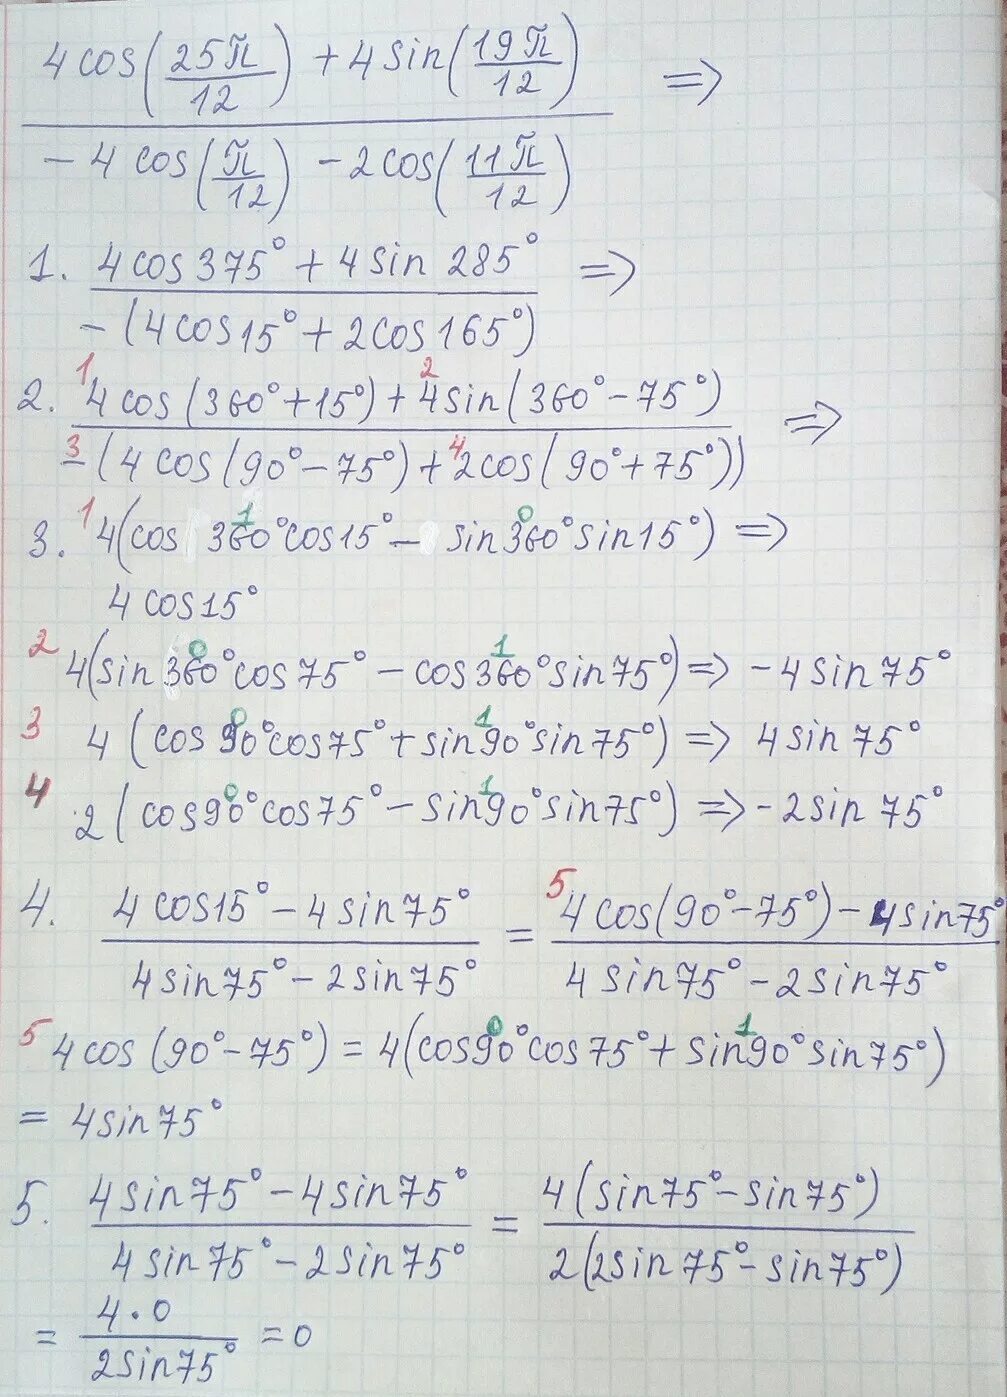 4cos(25π/12) + 4sin(19π/12) ⇒
-4cos(π/12) - 2cos(11π/12)
1. 4cos375° + 4sin285° ⇒
-(4cos15° + 2cos165°)
2. 1 4cos(360°+15°) + 2 4sin(360°-75°) ⇒
3 -(4cos(90°-75°) + 4 2cos(90°+75°))
3. 1 4(cos360°cos15° - sin360°sin15°) ⇒
1 0
4cos15°
2 4(sin360°cos75° - cos360°sin75°) ⇒ -4sin75°
0 1
3 4(cos90°cos75° + sin90°sin75°) ⇒ 4sin75°
0 1
4 2(cos90°cos75° - sin90°sin75°) ⇒ -2sin75°
0 1
4. 4cos15° - 4sin75° = 5 4cos(90°-75°) - 4sin75°
4sin75° - 2sin75° 4sin75° - 2sin75°
5 4cos(90°-75°) = 4(cos90°cos75° + sin90°sin75°)
0 1
= 4sin75°
5. 4sin75° - 4sin75° = 4(sin75° - sin75°)
4sin75° - 2sin75° 2(2sin75° - sin75°)
= 4·0 = 0
2sin75°